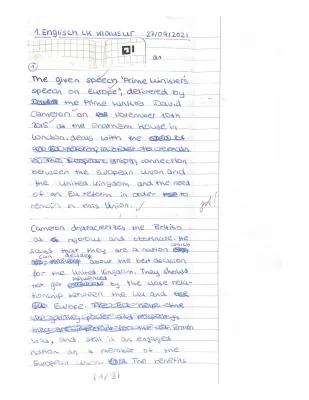 1. Englisch LK Klausur 27/09/2021
The given speech "Prime Minister's
speech on Europe", delivered by
the Prime Minister David
Cameron on November 10th
2015 at the Chatham House in
London, deals with the
connection
between the European Union and
the United Kingdom and the need
of an EU reform in order to
remain in this Union.
Cameron characterizes the British
as rigorous and obstinate. He
says that they are a nation which
can decide
about the best decision
for the United Kingdom. They should
not get influenced by the close rela-
tionship between the UK and
Europe.
Britain
was, and still is an engaged
nation as a member of the
European Union. The benefits
(1/3)